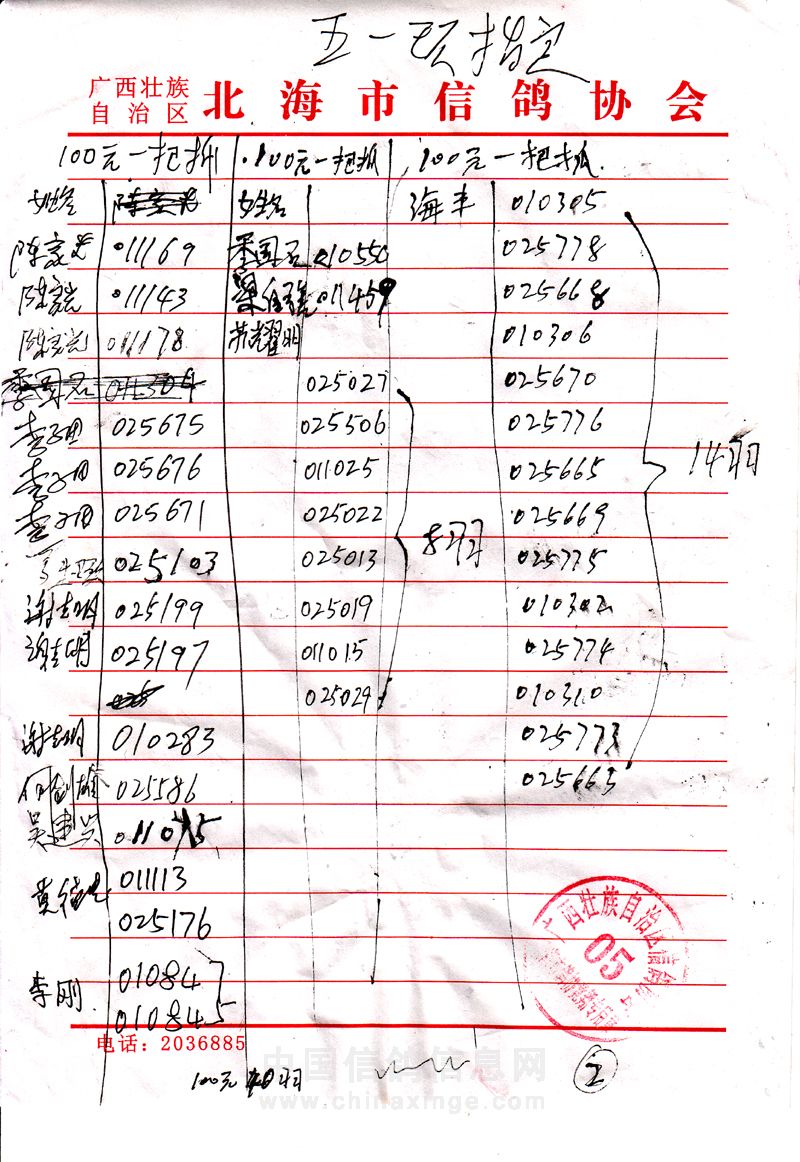 五一项指定
广西壮族
自治区 北海市信鸽协会
100元一把抓 100元一把抓 100元一把抓
姓名 姓名 海丰 010305
011169 010550 025778
011143 011459 025668
011178 耀明 010306
025027 025670
025675 025506 025776
025676 011025 025665
025671 025022 025669
025103 025013 025775
谢志明 025199 025019 010302
谢志明 025197 011015 025774
025029 010310
谢志明 010283 025773
025586 025663
吴建兴
011113
025176
李刚 010847
010845
8羽
14羽
电话：2036885
100元
2
广西壮族自治区信鸽
05
中国信鸽信息网
www.chinaxinge.com